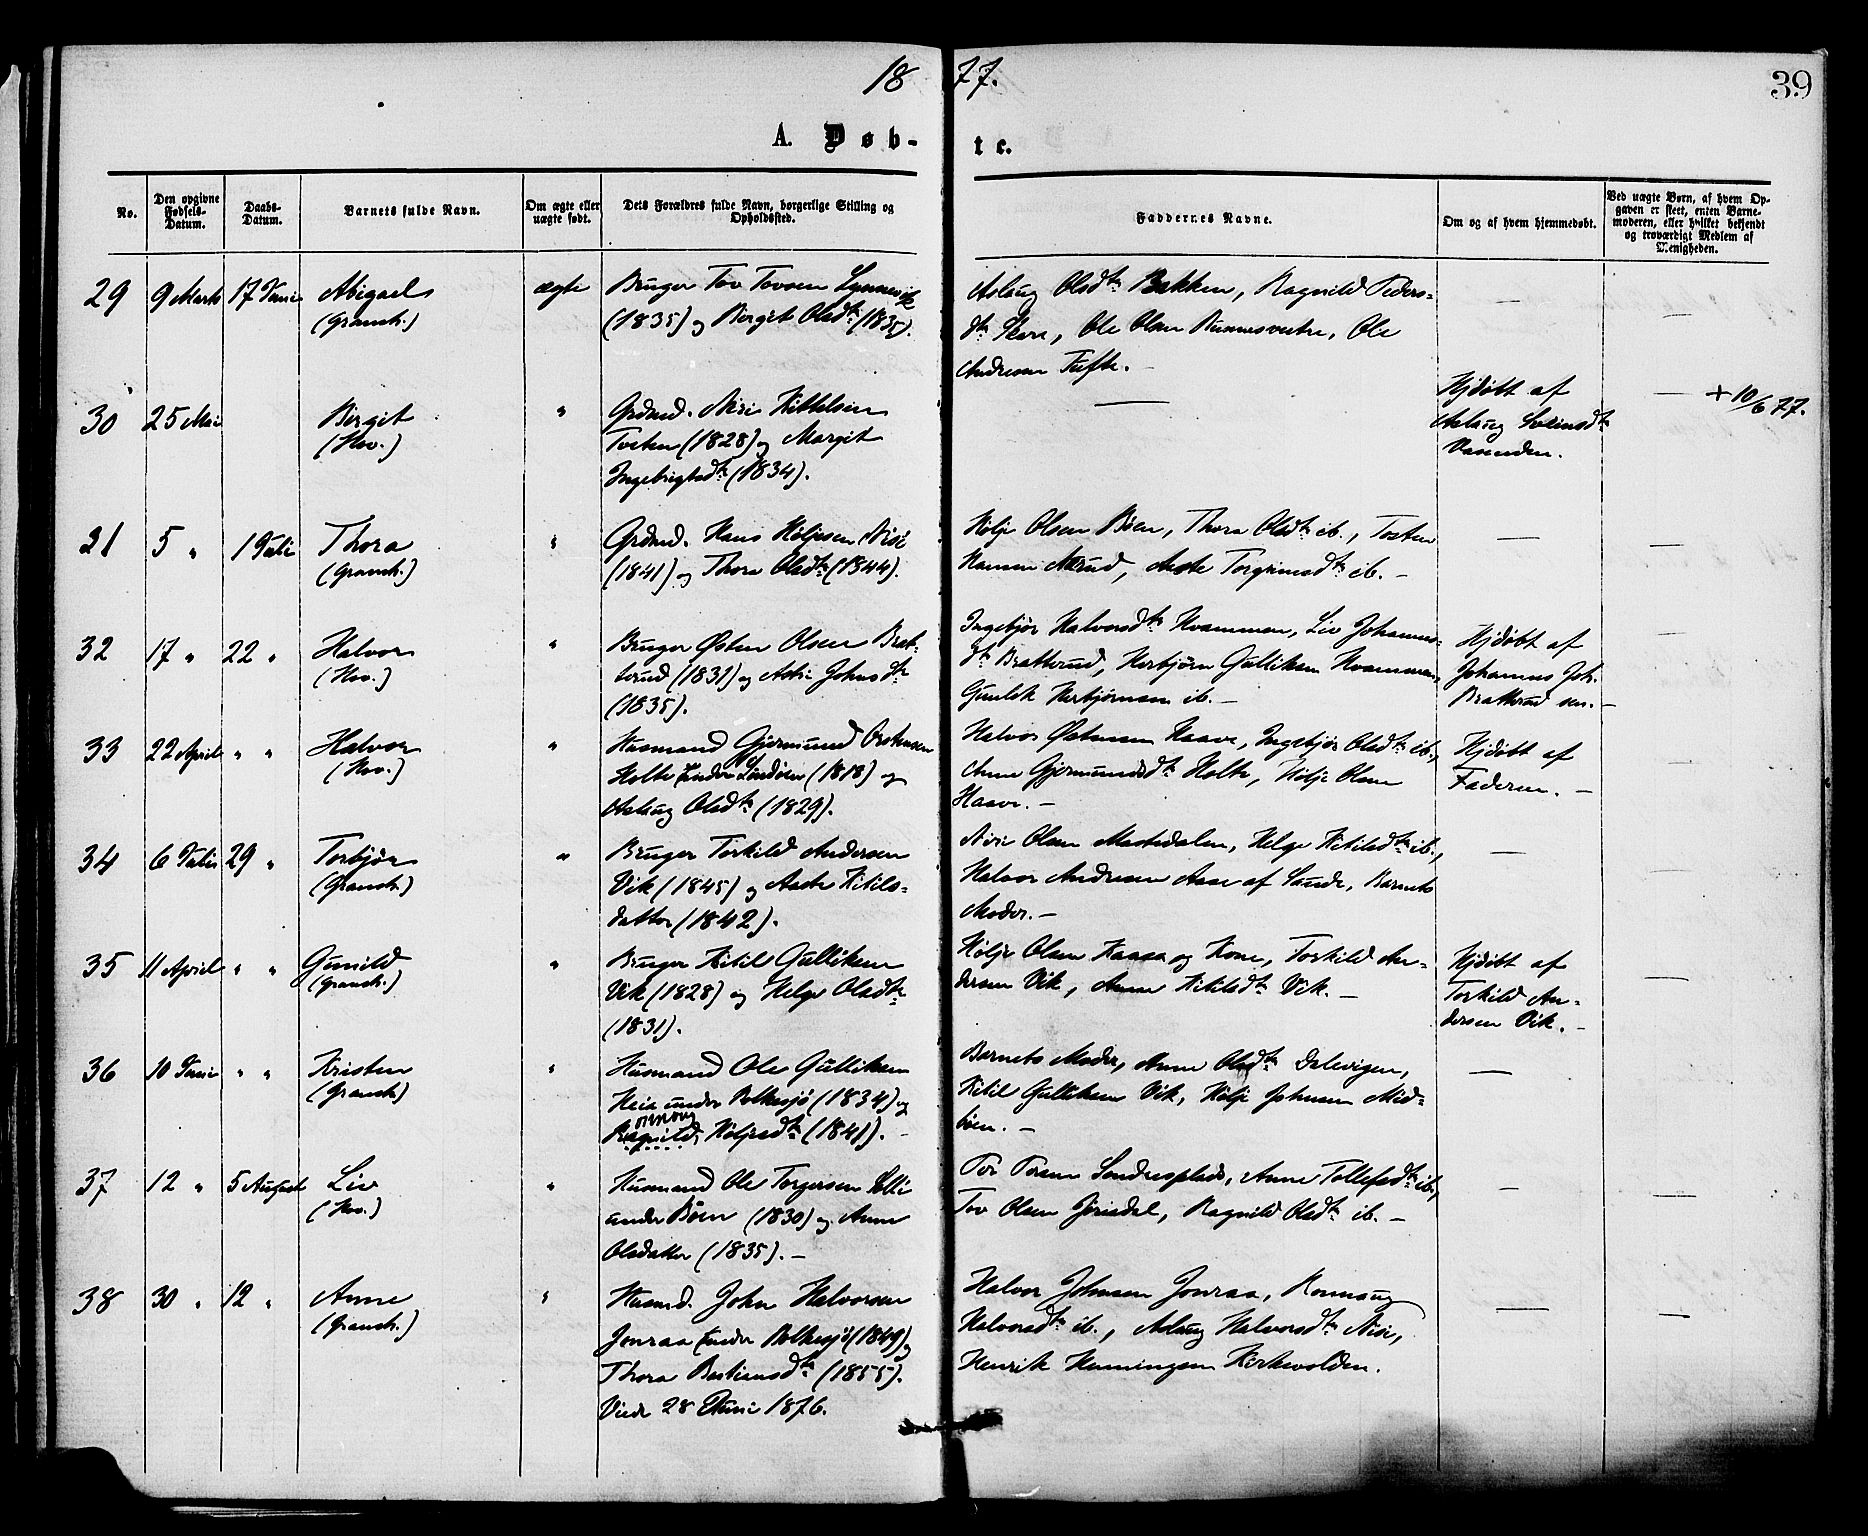 1877.
39
A. Døb-te.
No.
Den opgivne Fødsels-Datum.
Daabs-Datum.
Barnets fulde Navn.
Om ægte eller uægte født.
Dets Forældres fulde Navn, borgerlige Stilling og Opholdssted.
Faddernes Navne.
Om og af hvem hjemmedøbt.
Ved uægte Børn, af hvem Opgaven er skeet, enten Barnemoderen, eller hvilket bekjendt og troværdigt Medlem af Menigheden.
29 9 Marts 17 Juni Abigael ægte Bruger Tov Tovsen
(Gransh.) (1835) og Bergit Olsdtr (1835).
Aslaug Olsdtr Bakken, Ragnild Peders-
dtr Skore, Ole Olsen, Ole
Andresen Tufte. —
30 25 Mai Birgit " Grdmd. Nisi Kittelsen
(Hov.) Tosten (1828) og Margit
Ingebrigtsdtr (1834).
—
Hjdøbt af
Aslaug Sveinsdtr
Vasenden.
— + 10/6 77.
21 5 " 1 Juli Thora " Grdmd. Hans Høljesen Nisi
(Gransh.) (1841) og Thora Olsdtr (1844).
Hølje Olsen Bøen, Thora Olsdtr ib., Tosten
Hansen, Aaste Torgrimsdtr ib. —
32 17 " 22 " Halvor " Bruger Østen Olsen Brat-
(Hov.) terud (1831) og Johnsdtr
(1835).
Ingebjør Halvorsdtr Kvammen, Liv Johannes-
dtr Bratterud, Herbjørn Gulliksen Kvammen,
Gunlek Herbjørnsen ib. —
Hjdøbt af
Johannes Joh.
Bratterud sen. —
33 22 April " " Halvor " Husmand Gjermund Østensen
(Hov.) Holte under (1818) og
Aslaug Olsdtr (1829).
Halvor Østensen Haave, Ingebjør Olsdtr ib.,
Anne Gjermundsdtr Holte, Hølje Olsen
Haave. —
Hjdøbt af
Faderen. —
34 6 Juli 29 " Torbjør " Bruger Torkild Andersen
(Gransh.) Vik (1845) og Aaste Kitils-
datter (1842).
Nisi Olsen Mastedalen, Helge Kitilsdtr ib.,
Halvor Andresen Aase af Saude, Barnets
Moder. —
35 11 April " " Gunild " Bruger Kitil Gulliksen
(Gransh.) Vik (1828) og Helge Olsdtr
(1831).
Hølje Olsen Kaasa og Kone, Torkild An-
dersen Vik, Anne Kitilsdtr Vik. —
Hjdøbt af
Torkild An-
dersen Vik. —
36 10 Juni " " Kristen " Husmand Ole Gulliksen
(Gransh.) Heia under Bolkesjø (1834) og
Ragnild Høljesdtr (1841). —
Barnets Moder, Anne Olsdtr Dalevigen,
Kitil Gulliksen Vik, Hølje Johnsen Mid-
bøen. —
37 12 " 5 August Liv " Husmand Ole Torgersen
(Hov.) under Bøen (1830) og Anne
Olsdatter (1835). —
Tov Tovsen Søndresplads, Anne Tollefsdtr ib.,
Tov Olsen Jørisdal, Ragnild Olsdtr ib. —
38 30 " 12 " Anne " Husmd. John Halvorsen
(Gransh.) Jonraa under Bolkesjø (1849) og
Thora Bastiansdtr (1855).
Viede 28 Juni 1876.
Halvor Johnsen Jonraa, Ronnaug
Halvorsdtr ib., Aslaug Halvorsdtr Nisi,
Henrik Henningsen Kirkevolden.